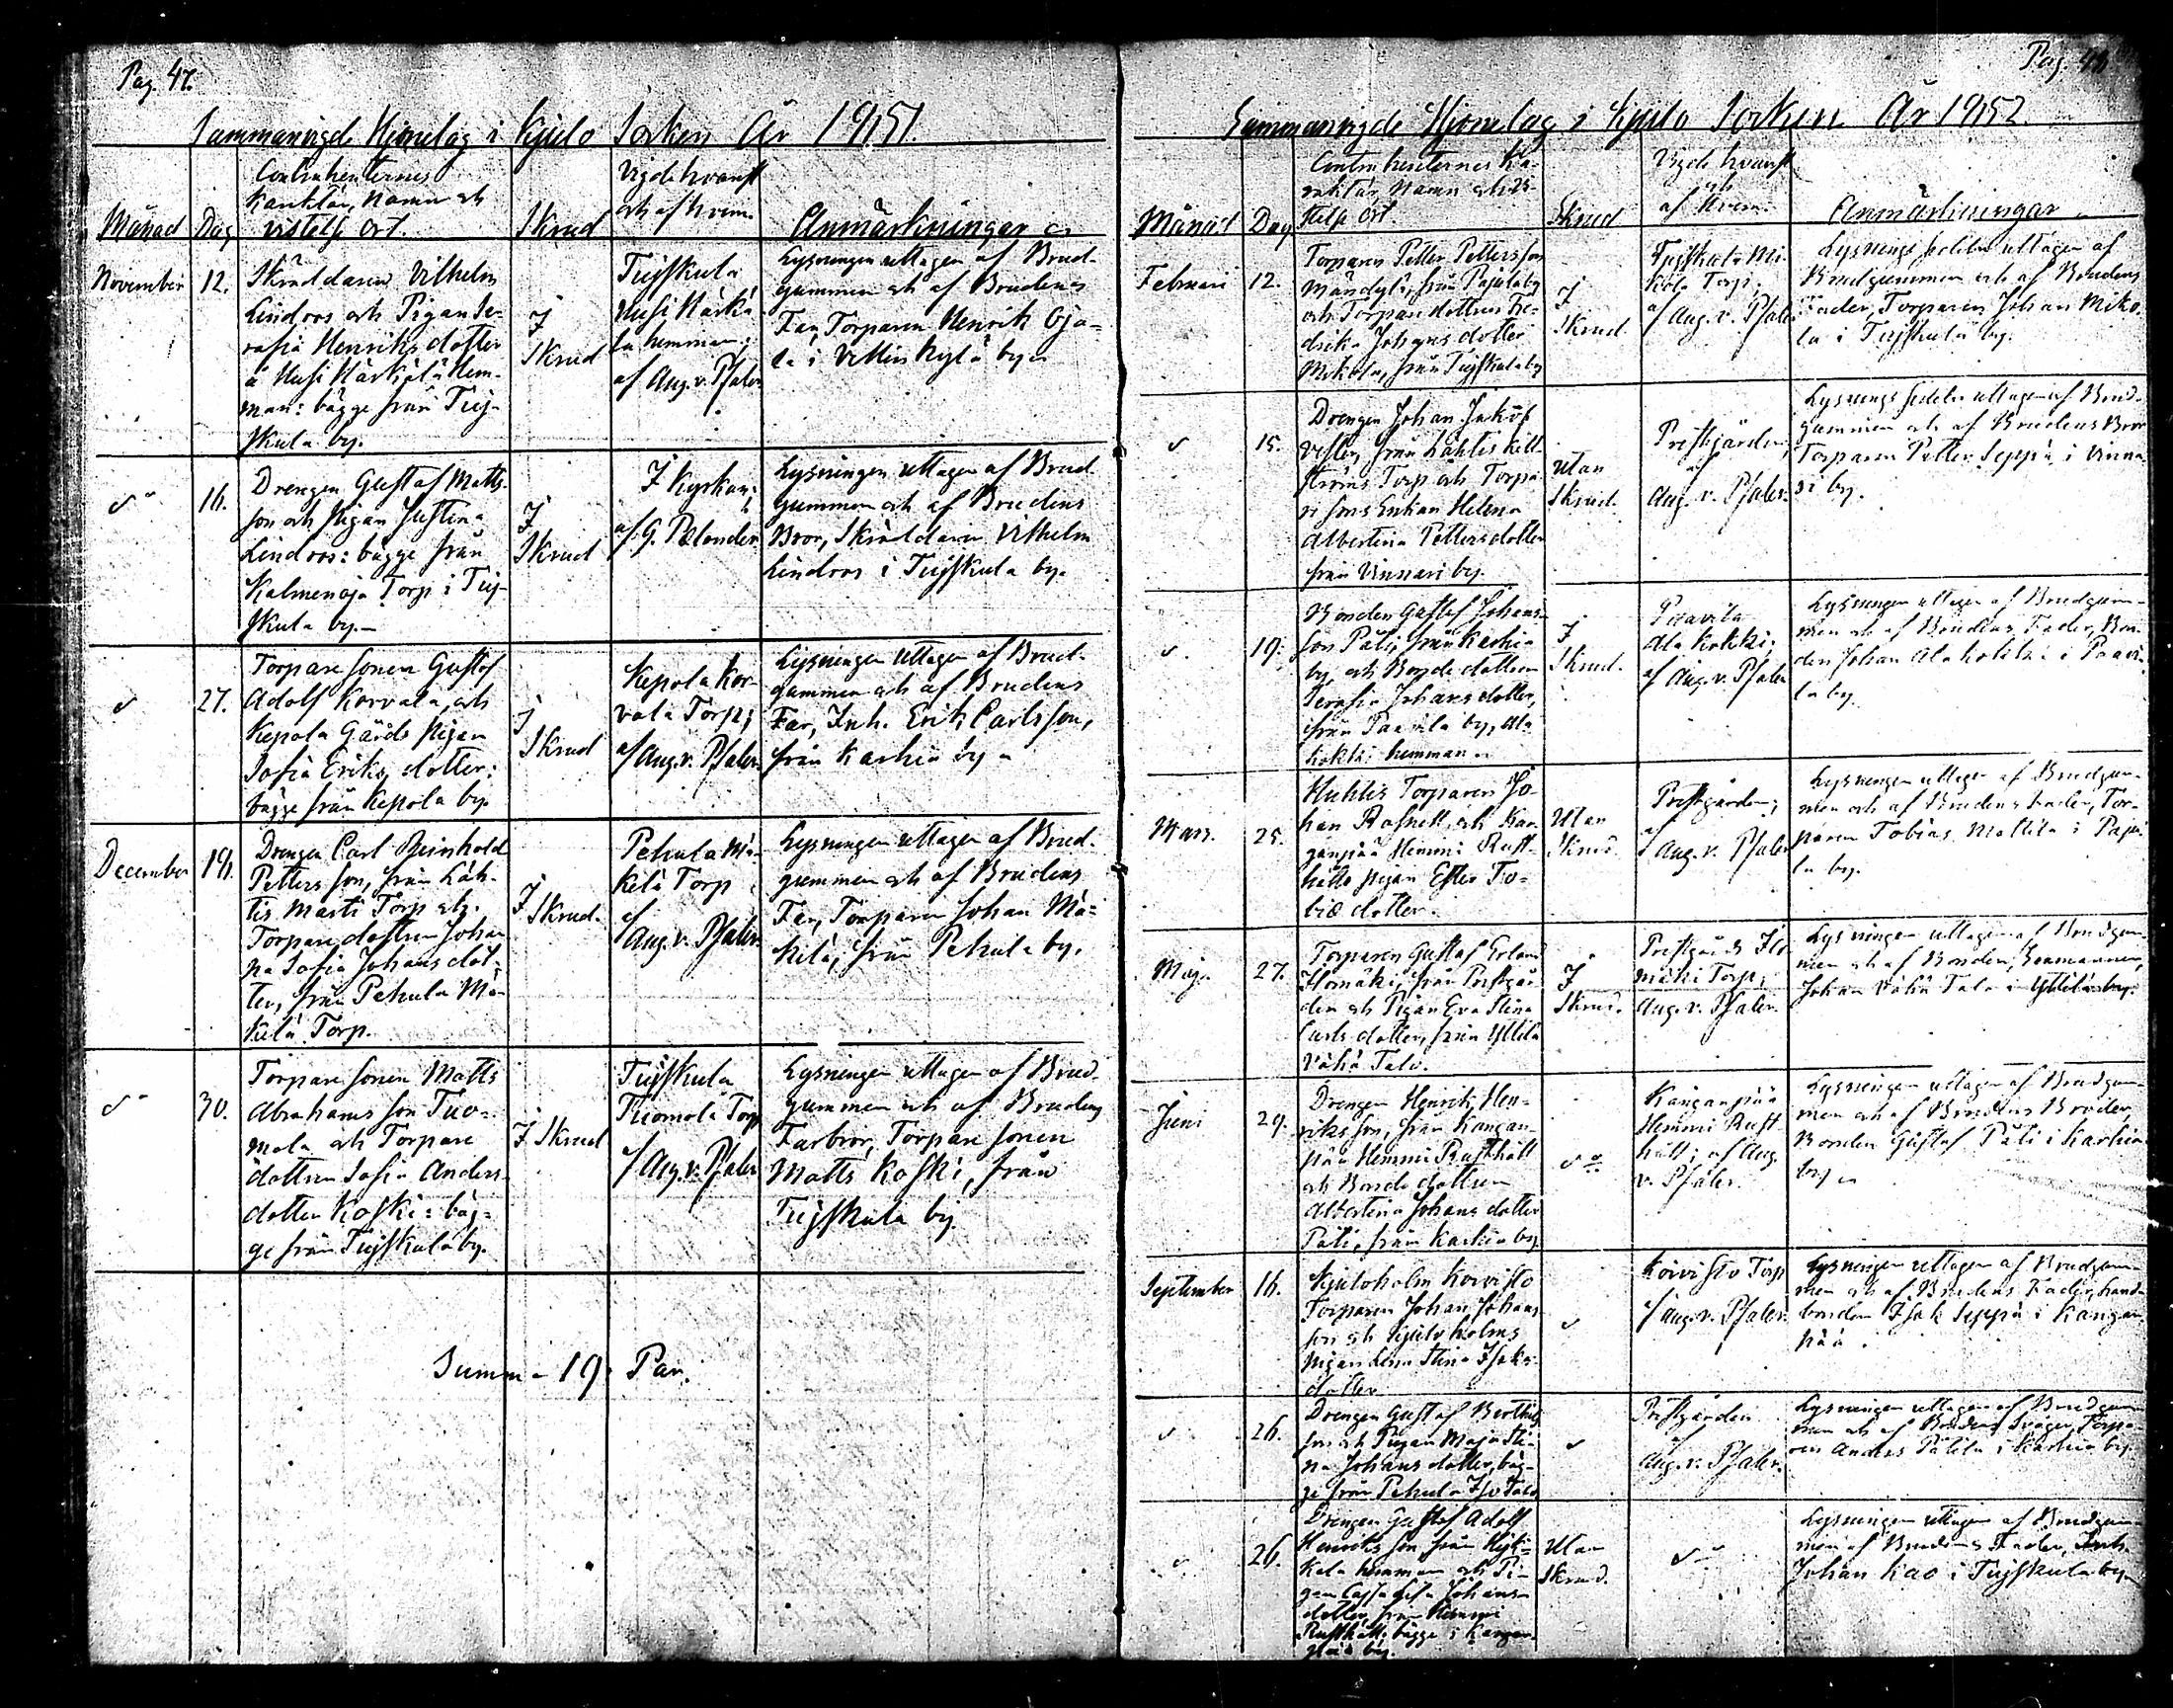 Pag. 47.
Sammanvigde Hjonelag i Kjulo Socken År 1851.
Månad
Dag
Contrahenternes
Karaktär, Namn och
vistelse Ort.
Skrud
Vigde hvarest
och af hvem
Anmärkningar
November
12.
Skräddaren Vilhelm
Lindroos och Pigan Se-
rafia Henriksdotter
å Uusi Härkälä Hem-
man: bägge från Tuis-
kula by.
I
Skrud
Tuiskula
Uusi Härkä-
lä hemman;
af Aug. v. Pfaler.
Lysningen uttagen af Brud-
gummen och af Brudens
Far, Torparen Henrik Oja-
la i Vittinkylä by
16.
Drengen Gustaf Matts-
son och Pigan Justina
Lindroos: bägge från
Kalmenoja Torp i Tuis-
kula by.
I
Skrud
I Kyrkan;
af G. Polander
Lysningen uttagen af Brud-
gummen och af Brudens
Bror, Skräddaren Vilhelm
Lindroos i Tuiskula by.
27.
Torpare sonen Gustaf
Adolf Korvala, och
Kepola Gårds Pigan
Sofia Eriks dotter:
bägge från Kepola by.
I
Skrud
Kepola Kor-
vala Torp;
af Aug. v. Pfaler.
Lysningen uttagen af Brud-
gummen och af Brudens
Far, Inh. Erik Carlsson,
från Karhia by
December
19.
Drengen Carl Reinhold
Petters son, från Läh-
tis Marti Torp och
Torpare dottren Johan-
na Sofia Johans dot-
ter, från Pehula Mä-
kilä Torp.
I
Skrud.
Pehula Mä-
kilä Torp
af
Aug. v. Pfaler.
Lysningen uttagen af Brud-
gummen och af Brudens
Far, Torparen Johan Mä-
kilä, från Pehula by.
30.
Torpare sonen Matts
Abrahams son Tuo-
mola och Torpare
dottren Sofia Anders-
dotter Koski: bäg-
ge från Tuiskula by.
I Skrud
Tuiskula
Tuomola Torp
af Aug. v. Pfaler
Lysningen uttagen af Brud-
gummen och af Brudens
Farbror, Torpare sonen
Matts Koski, från
Tuiskula by.
Summa 19. Par.
Pag. 48
Sammanvigde Hjonelag i Kjulo Socken År 1852.
Månad
Dag
Contrahenternes Ka-
raktär, Namn och Vi-
stelse Ort
Skrud
Vigde hvarest
och
af hvem.
Anmärkningar
Februari
12.
Torparen Petter Petters son
från Pajula by
och Torpare dottren Fre-
drika Johans dotter
Mikola, från Tuiskula by
I
Skrud.
Tuiskula Mi-
kola Torp;
af Aug. v. Pfaler
Lysnings sedeln uttagen af
Brudgummen och af Brudens
Fader, Torparen Johan Miko-
la i Tuiskula by.
15.
Drengen Johan Jakob
från Lähtis
Torp och Torpa-
re sons Enkan Helena
Albertina Pettersdotter
från Vinnari by.
Utan
Skrud.
Prestgården;
af
Aug. v. Pfaler.
Lysnings sedeln uttagen af Brud-
gummen och af Brudens Bror
Torparen Petter Seppä i Vinna-
ri by.
19.
Bonden Gustaf Johans-
son Päti, från Karhia
by, och Bonde dottren
Serafia Johans dotter,
från Paavila by, Ala
hemman
I
Skrud.
Paavila
Ala
af Aug. v. Pfaler
Lysningen uttagen af Brudgum-
men och af Brudens Fader, Bon-
den Johan Ala i Paavi-
la by
Mars.
25.
Torparen Jo-
han och Kan-
ganpää Hemmi Rust-
hålls pigan Ester To-
bias dotter.
Utan
Skrud.
Prestgården;
af
Aug. v. Pfaler
Lysningen uttagen af Brudgum-
men och af Brudens Fader, Tor-
paren Tobias Mattila i Paju-
la by.
Maji
27.
Torparen Gustaf Erland
Ilomäki, från Prestgår-
den och Pigan Eva Stina
Carls dotter, från Yttilä
Vähä Talo.
I
Skrud.
Prestgårds Ilo-
mäki Torp;
Aug. v. Pfaler.
Lysningen uttagen af Brudgum-
men och af Bonden,
Johan Vähä Talo i Yttilä by.
Juni
29.
Drengen Henrik Hen-
riksson, från Kangan-
pää Hemmi Rusthåll
och Bonde dottren
Albertina Johans dotter
Päti, från Karhia by
Kanganpää
Hemmi Rust-
håll; af Aug.
v. Pfaler.
Lysningen uttagen af Brudgum-
men och af Brudens Broder,
Bonden Gustaf Päti i Karhia
by
September
16.
Kjuloholm Koivisto
Torparen Johan Johans-
son och Kjuloholms
pigan Lena Stina Isaks-
dotter
Koivisto Torp
af Aug. v. Pfaler.
Lysningen uttagen af Brudgum-
men och af Brudens Fader,
bonden Isak Seppä i Kangan-
pää
26.
Drengen Gustaf Berthels
son och Pigan Maja Sti-
na Johans dotter, bäg-
ge från Pehula Iso Talo
Prestgården
af
Aug. v. Pfaler.
Lysningen uttagen af Brudgum-
men och af Brudens Svåger, Torpa-
ren Anders Pätilä i Karhia by
26.
Drengen Gustaf Adolf
Henriks son från
hemman och Pi-
gan Cajsa Lisa Johans-
dotter, från
Rusthåll: bägge i Kangan-
pää by.
Utan
Skrud.
Lysningen uttagen af Brudgum-
men af Brudens Fader, Inh.
Johan Kao i Tuiskula by